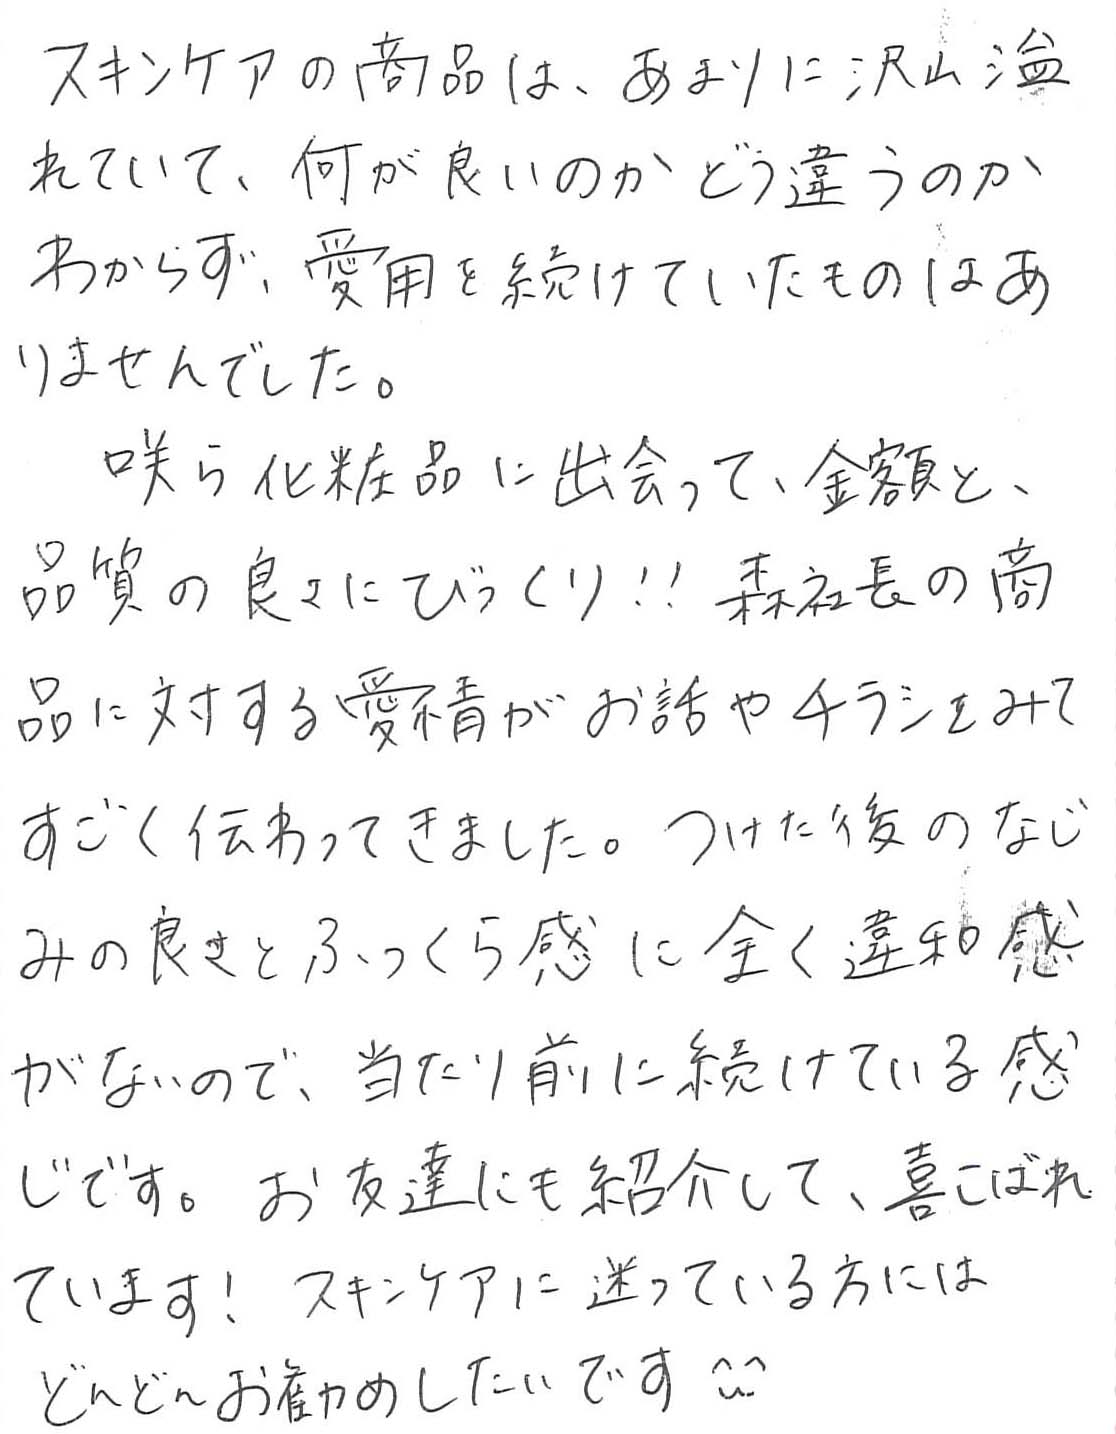 スキンケアの商品は、あまりに沢山溢
れていて、何が良いのかどう違うのか
わからず、愛用を続けていたものはあ
りませんでした。
咲ら化粧品に出会って、金額と、
品質の良さにびっくり!!森社長の商
品に対する愛情がお話やチラシをみて
すごく伝わってきました。つけた後のなじ
みの良さとふっくら感に全く違和感
がないので、当たり前に続けている感
じです。お友達にも紹介して、喜こばれ
ています!スキンケアに迷っている方には
どんどんお勧めしたいです^^